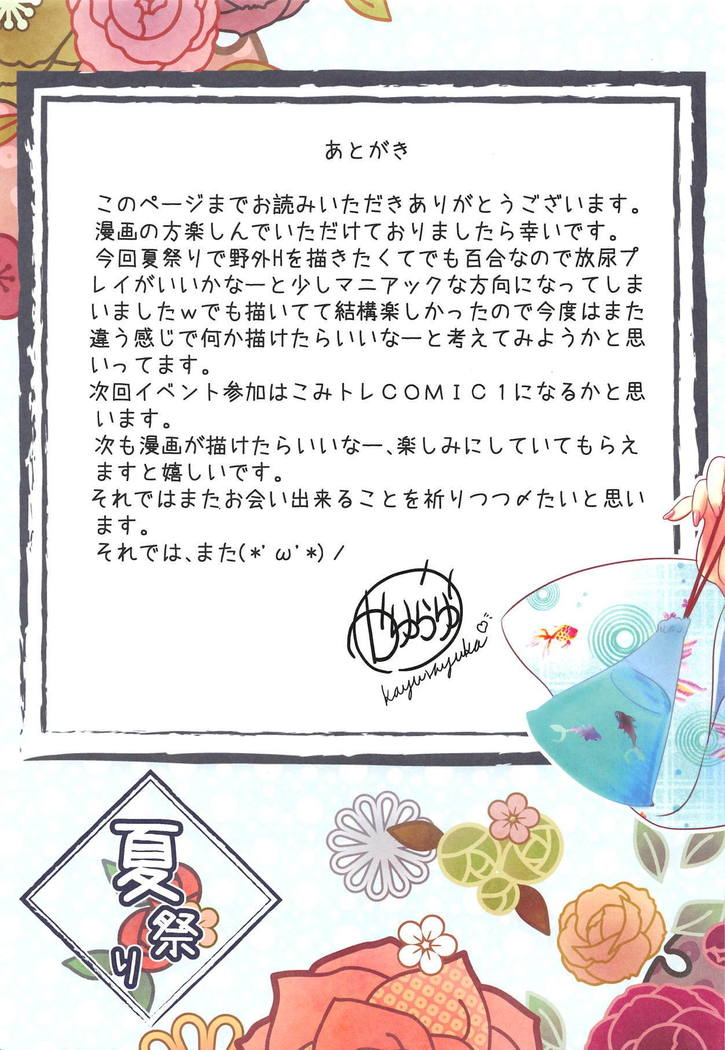 あとがき
このページまでお読みいただきありがとうございます。
漫画の方楽しんでいただけておりましたら幸いです。
今回夏祭りで野外Hを描きたくてでも百合なので放尿プ
レイがいいかなーと少しマニアックな方向になってしま
いましたｗでも描いてて結構楽しかったので今度はまた
違う感じで何か描けたらいいなーと考えてみようかと思
いってます。
次回イベント参加はこみトレＣＯＭＩＣ１になるかと思
います。
次も漫画が描けたらいいなー、楽しみにしていてもらえ
ますと嬉しいです。
それではまたお会い出来ることを祈りつつ〆たいと思い
ます。
それでは、また(*'ω'*)ノ
かゆらゆか
kayurayuka
夏祭り